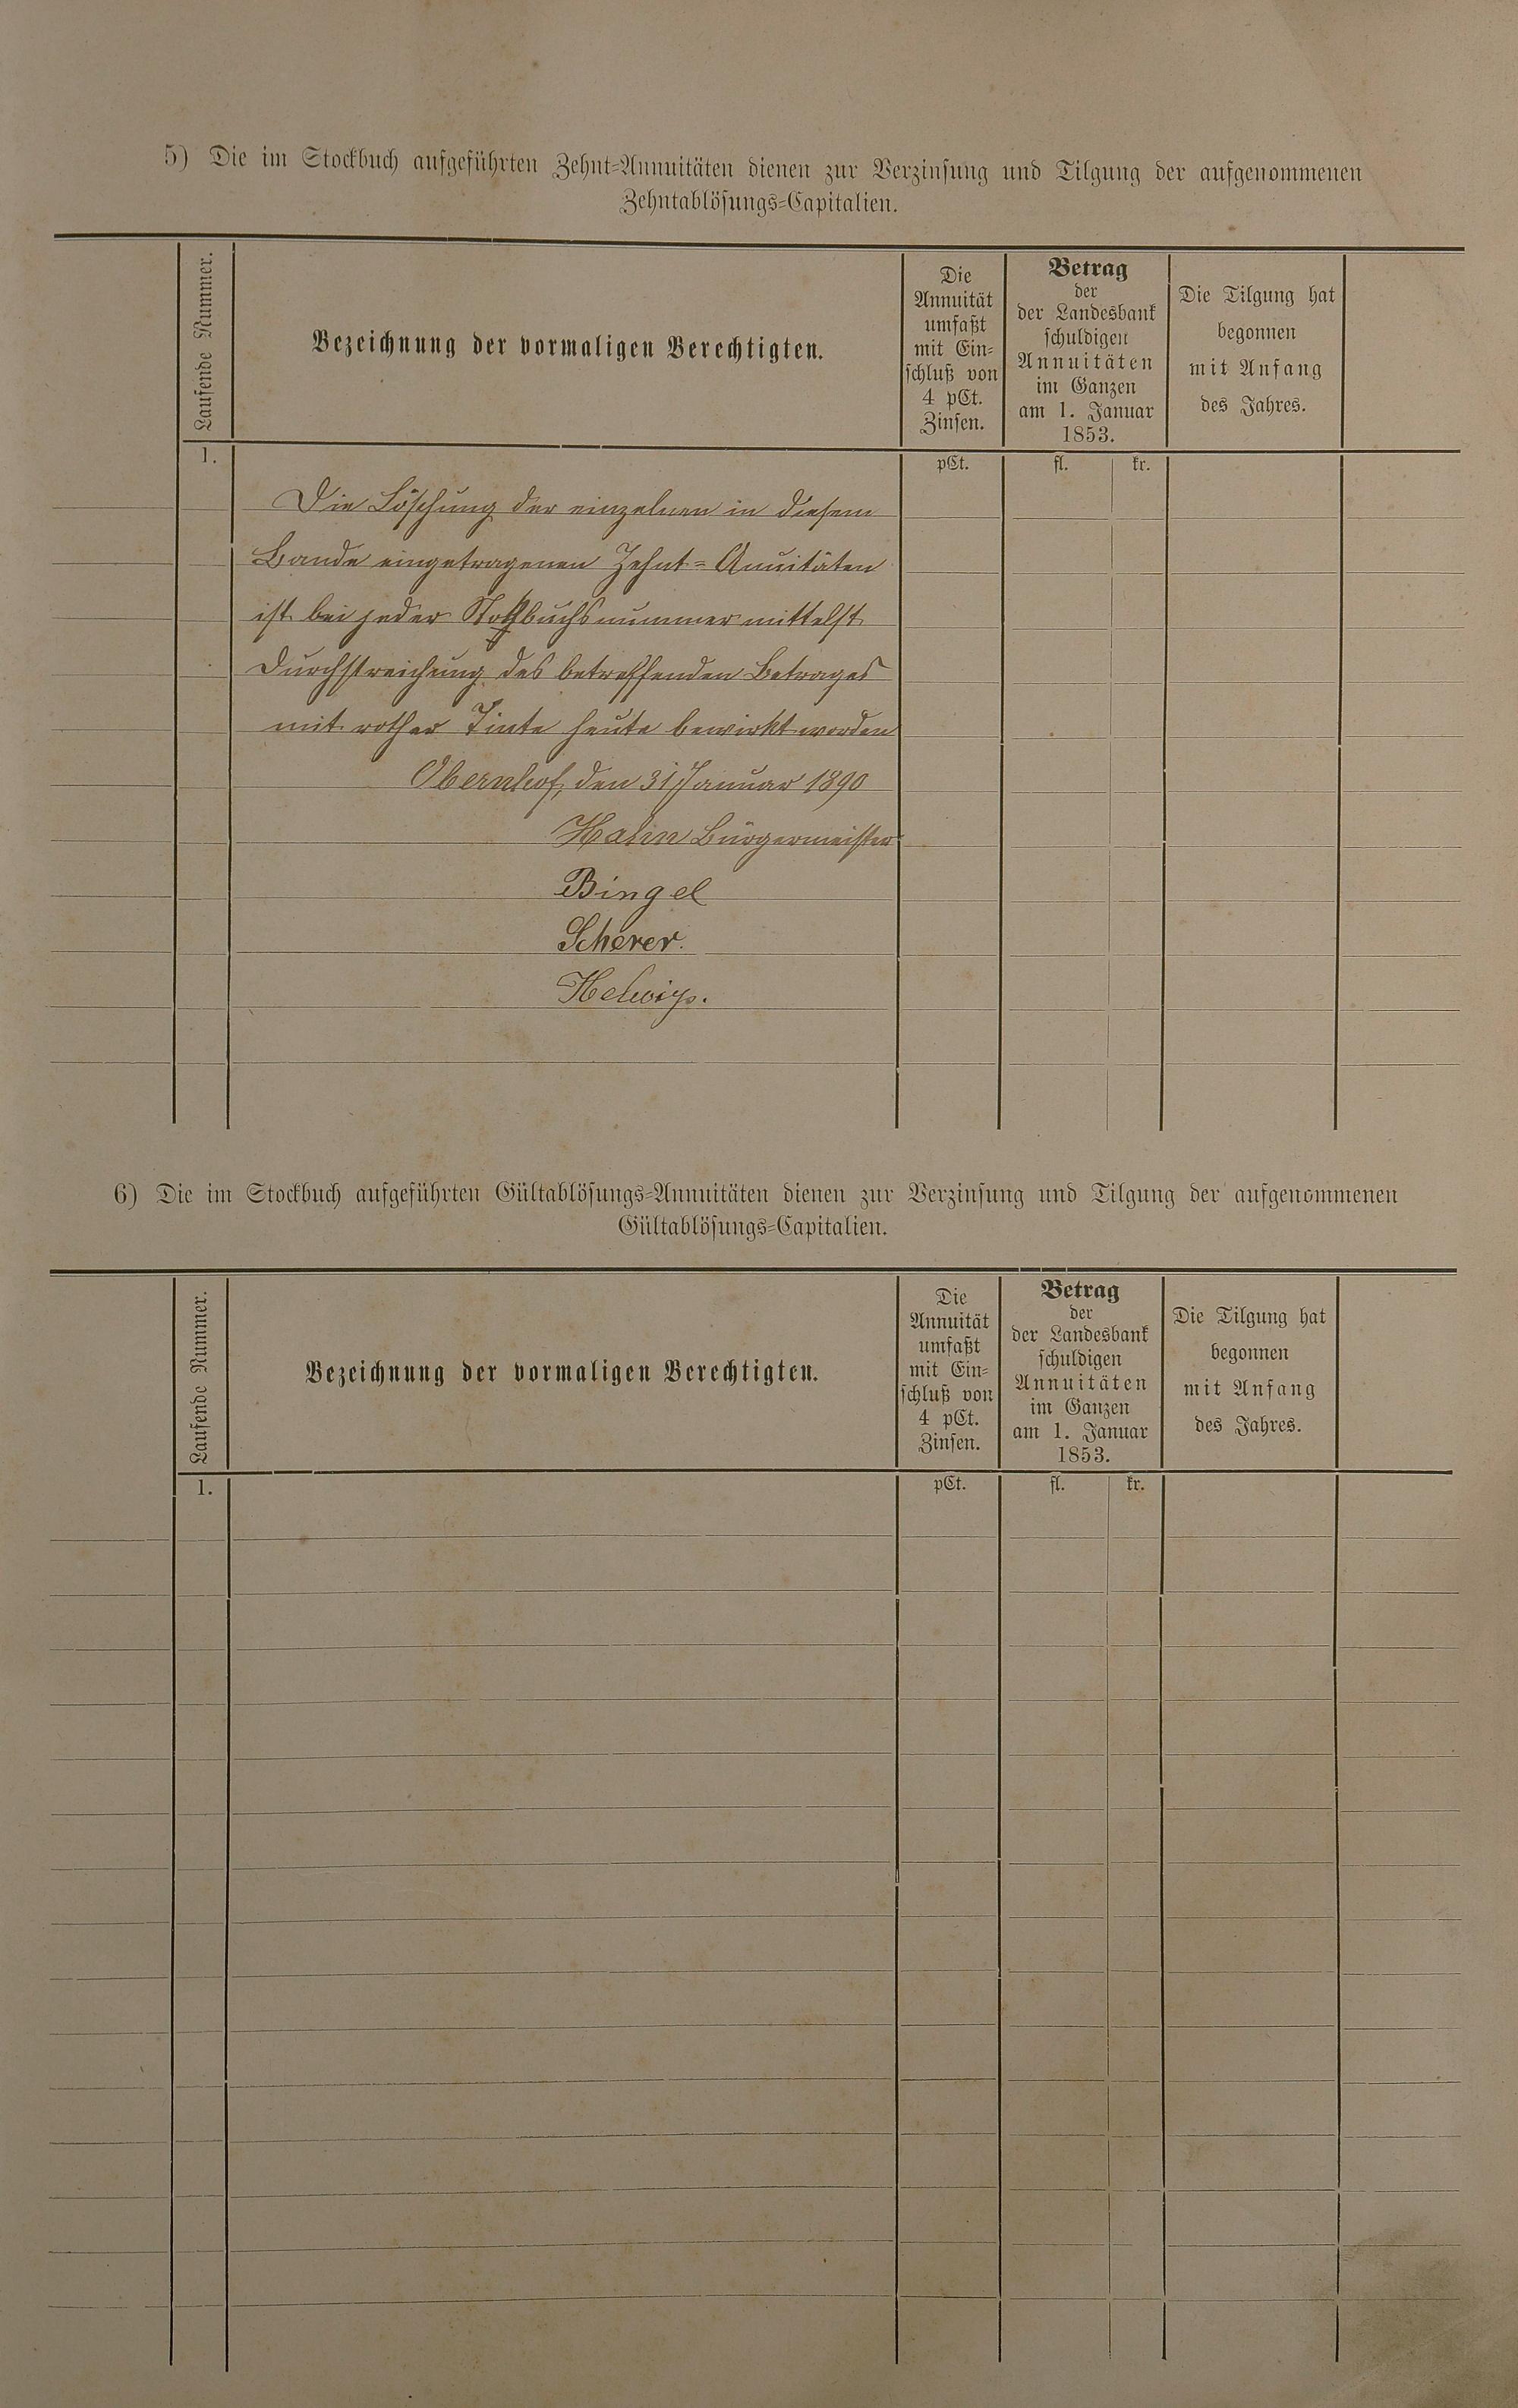 5) Die im Stockbuch aufgeführten Zehnt-Annuitäten dienen zur Verzinsung und Tilgung der aufgenommenen
Zehntablösungs-Capitalien.
Laufende Nummer.
Bezeichnung der vormaligen Berechtigten.
Die
Annuität
umfaßt
mit Ein-
schluß von
4 pCt.
Zinsen.
Betrag
der
der Landesbank
schuldigen
Annuitäten
im Ganzen
am 1. Januar
1853.
Die Tilgung hat
begonnen
mit Anfang
des Jahres.
1.
pCt.
fl.
kr.
Die Löschung der einzelnen in diesem
Bande eingetragenen Zehnt-Anuitäten
ist bei jeder Stockbuchsnummer mittelst
Durchstreichung des betreffenden Betrages
mit rother Tinte heute bewirkt worden
Obernhof, den 31 Januar 1890
Hahn Bürgermeister
Bingel
Scherer.
6) Die im Stockbuch aufgeführten Gültablösungs-Annuitäten dienen zur Verzinsung und Tilgung der aufgenommenen
Gültablösungs-Capitalien.
Laufende Nummer.
Bezeichnung der vormaligen Berechtigten.
Die
Annuität
umfaßt
mit Ein-
schluß von
4 pCt.
Zinsen.
Betrag
der
der Landesbank
schuldigen
Annuitäten
im Ganzen
am 1. Januar
1853.
Die Tilgung hat
begonnen
mit Anfang
des Jahres.
1.
pCt.
fl.
kr.